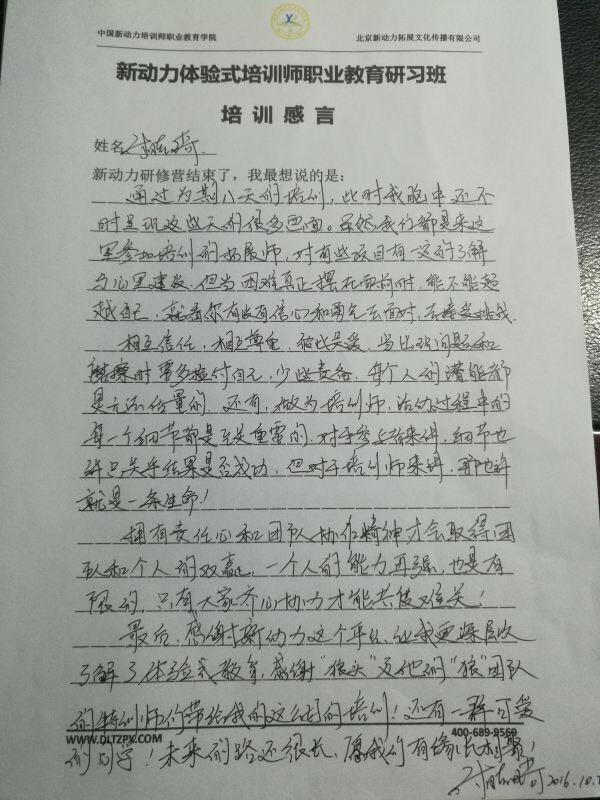 中国新动力培训师职业教育学院
北京新动力拓展文化传播有限公司
新动力体验式培训师职业教育研习班
培训感言
姓名
新动力研修营结束了，我最想说的是：
通过为期八天的培训，此时我脑中还不
时呈现这些天的很多画面。虽然我们都是来这
里参加培训的拓展师，对有些项目有一定的了解
与心里建设，但当困难真正摆在面前时，能不能超
越自己，就看你有没有信心和勇气去面对，去接受挑战.
相互信任，相互尊重，彼此关爱，当出现问题和
摩擦时要多检讨自己，少些责备，每个人的潜能都
是无法估量的，还有，做为培训师，活动过程中的
每一个细节都是至关重要的，对于参与者来讲，细节也
许只关乎结果是否成功，但对于培训师来讲，那也许
就是一条生命！
拥有责任心和团队协作精神才会取得团
队和个人的双赢，一个人的能力再强，也是有
限的，只有大家齐心协力才能共渡难关！
最后，感谢新动力这个平台，让我更深层次
了解了体验式教育，感谢“狼头”及他们“狼”团队
的特训师们带给我们这么好的培训！还有一群可爱
WWW.DLTZPX.COM
400-689-9560
的同学！未来的路还很长，愿我们有缘江湖聚！
2016.10.